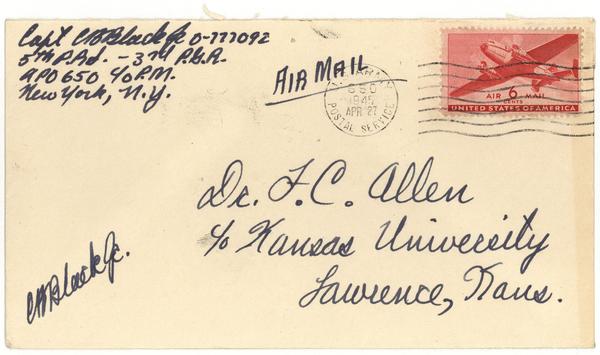 Capt CB Black Jr O-777092
5TH P.Rd. - 3rd P.G.R.
APO 650 c/o P.M.
New York, N.Y.
AIR MAIL
650
1945
APR 27
POSTAL SERVICE
AIR 6 MAIL
CENTS
UNITED STATES OF AMERICA
Dr. F. C. Allen
c/o Kansas University
Lawrence, Kans.
CB Black Jr.